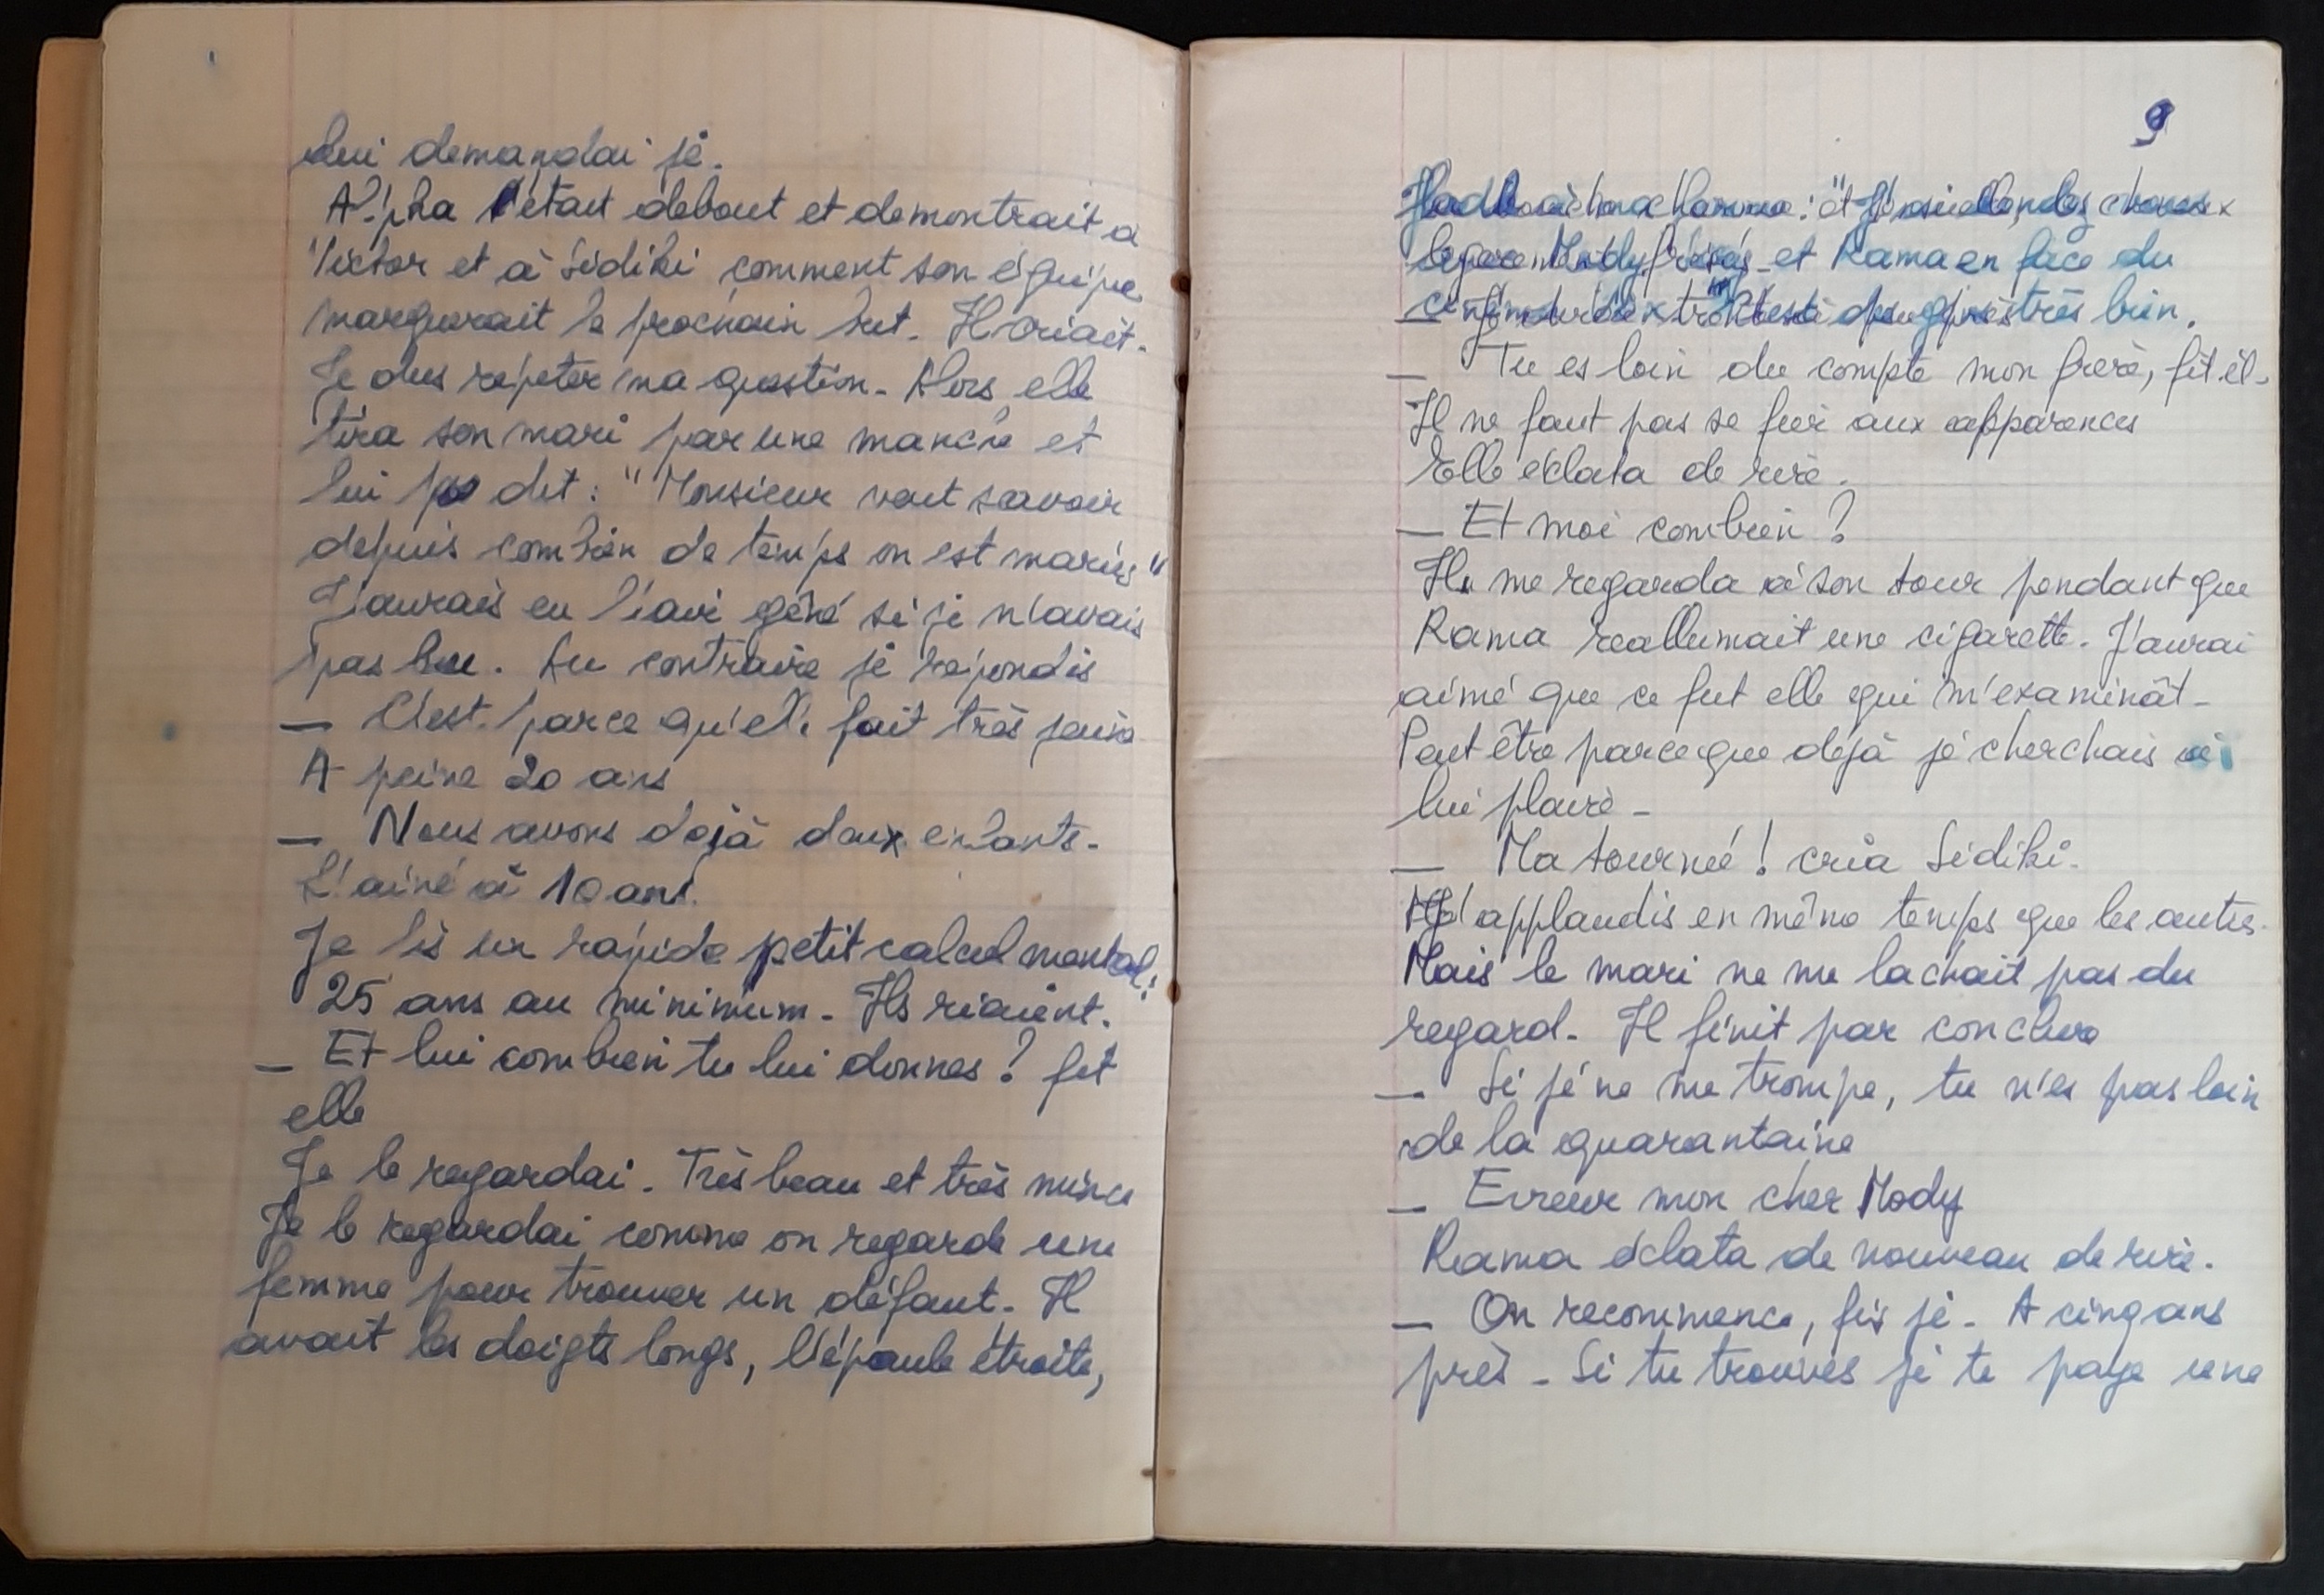 lui demandai je.
Alpha était debout et demontrait à
Victor et à Sidiki comment son équipe
marquerait le prochain but. Il criait.
Je dus repeter ma question. Alors elle
tira son mari par une manche et
lui dit : "Monsieur veut savoir
depuis combien de temps on est mariés"
J'aurais eu l'air gêné si je n'avais
pas bu. Au contraire je répondis
— C'est parce qu'elle fait très jeune
A peine 20 ans
— Nous avons dejà deux enfants.
L'ainé a 10 ans.
Je fis un rapide petit calcul mental :
25 ans au minimum. Ils riaient.
— Et lui combien tu lui donnes ? fit
elle
Je le regardai. Très beau et très mince
Je le regardai comme on regarde une
femme pour trouver un défaut. Il
avait les doigts longs, l'épaule étroite,
9
et Rama en face du
très bien.
— Tu es loin du compte mon frère, fit il.
Il ne faut pas se fier aux apparences
Elle éclata de rire.
— Et moi combien ?
Il me regarda à son tour pendant que
Rama reallumait une cigarette. J'aurai
aimé que ce fut elle qui m'examinât.
Peut être parce que déjà je cherchais à
lui plaire.
— Ma tournée ! cria Sidiki.
J'applaudis en même temps que les autres.
Mais le mari ne me lachait pas du
regard. Il finit par conclure
— Si je ne me trompe, tu n'es pas loin
de la quarantaine
— Erreur mon cher Mody
Rama éclata de nouveau de rire.
— On recommence, fis je. A cinq ans
près. Si tu trouves je te paye une